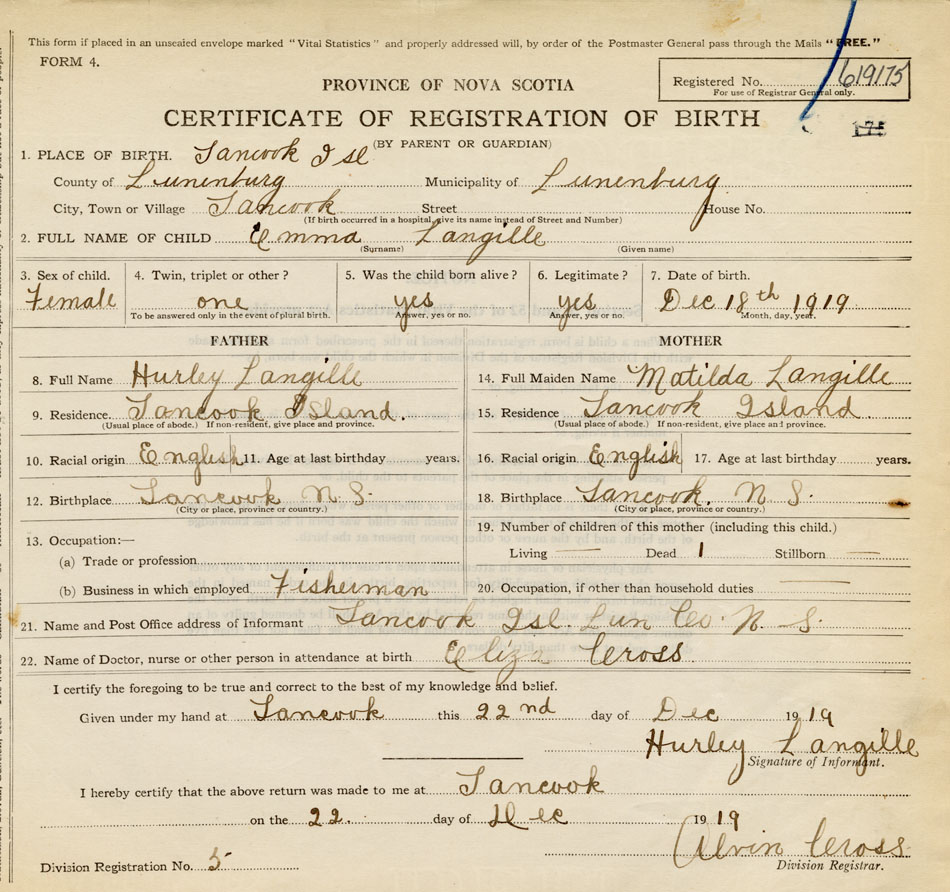 This form if placed in an unsealed envelope marked "Vital Statistics" and properly addressed will, by order of the Postmaster General pass through the Mails "FREE."
FORM 4.
PROVINCE OF NOVA SCOTIA
Registered No. 619175
For use of Registrar General only.
CERTIFICATE OF REGISTRATION OF BIRTH
175
(BY PARENT OR GUARDIAN)
1. PLACE OF BIRTH. Tancook Isl
County of Lunenburg Municipality of Lunenburg
City, Town or Village Tancook Street House No.
(If birth occurred in a hospital, give its name instead of Street and Number)
2. FULL NAME OF CHILD Emma Langille
(Surname) (Given name)
3. Sex of child. 4. Twin, triplet or other? 5. Was the child born alive? 6. Legitimate? 7. Date of birth.
Female one yes yes Dec 18th 1919
To be answered only in the event of plural birth. Answer, yes or no. Answer, yes or no. Month, day, year.
FATHER MOTHER
8. Full Name Hurley Langille 14. Full Maiden Name Matilda Langille
9. Residence. Tancook Island. 15. Residence Tancook Island
(Usual place of abode.) If non-resident, give place and province. (Usual place of abode.) If non-resident, give place and province.
10. Racial origin English 11. Age at last birthday years. 16. Racial origin English 17. Age at last birthday years.
12. Birthplace Tancook N. S. 18. Birthplace Tancook. N. S.
(City or place, province or country.) (City or place, province or country.)
13. Occupation:— 19. Number of children of this mother (including this child.)
(a) Trade or profession Living — Dead 1 Stillborn —
(b) Business in which employed Fisherman 20. Occupation, if other than household duties —
21. Name and Post Office address of Informant Tancook Isl. Lun Co. N. S.
22. Name of Doctor, nurse or other person in attendance at birth Eliza Cross
I certify the foregoing to be true and correct to the best of my knowledge and belief.
Given under my hand at Tancook this 22nd day of Dec 1919
Hurley Langille
Signature of Informant.
I hereby certify that the above return was made to me at Tancook
on the 22. day of Dec 1919
Alvin Cross
Division Registration No. 5 Division Registrar.